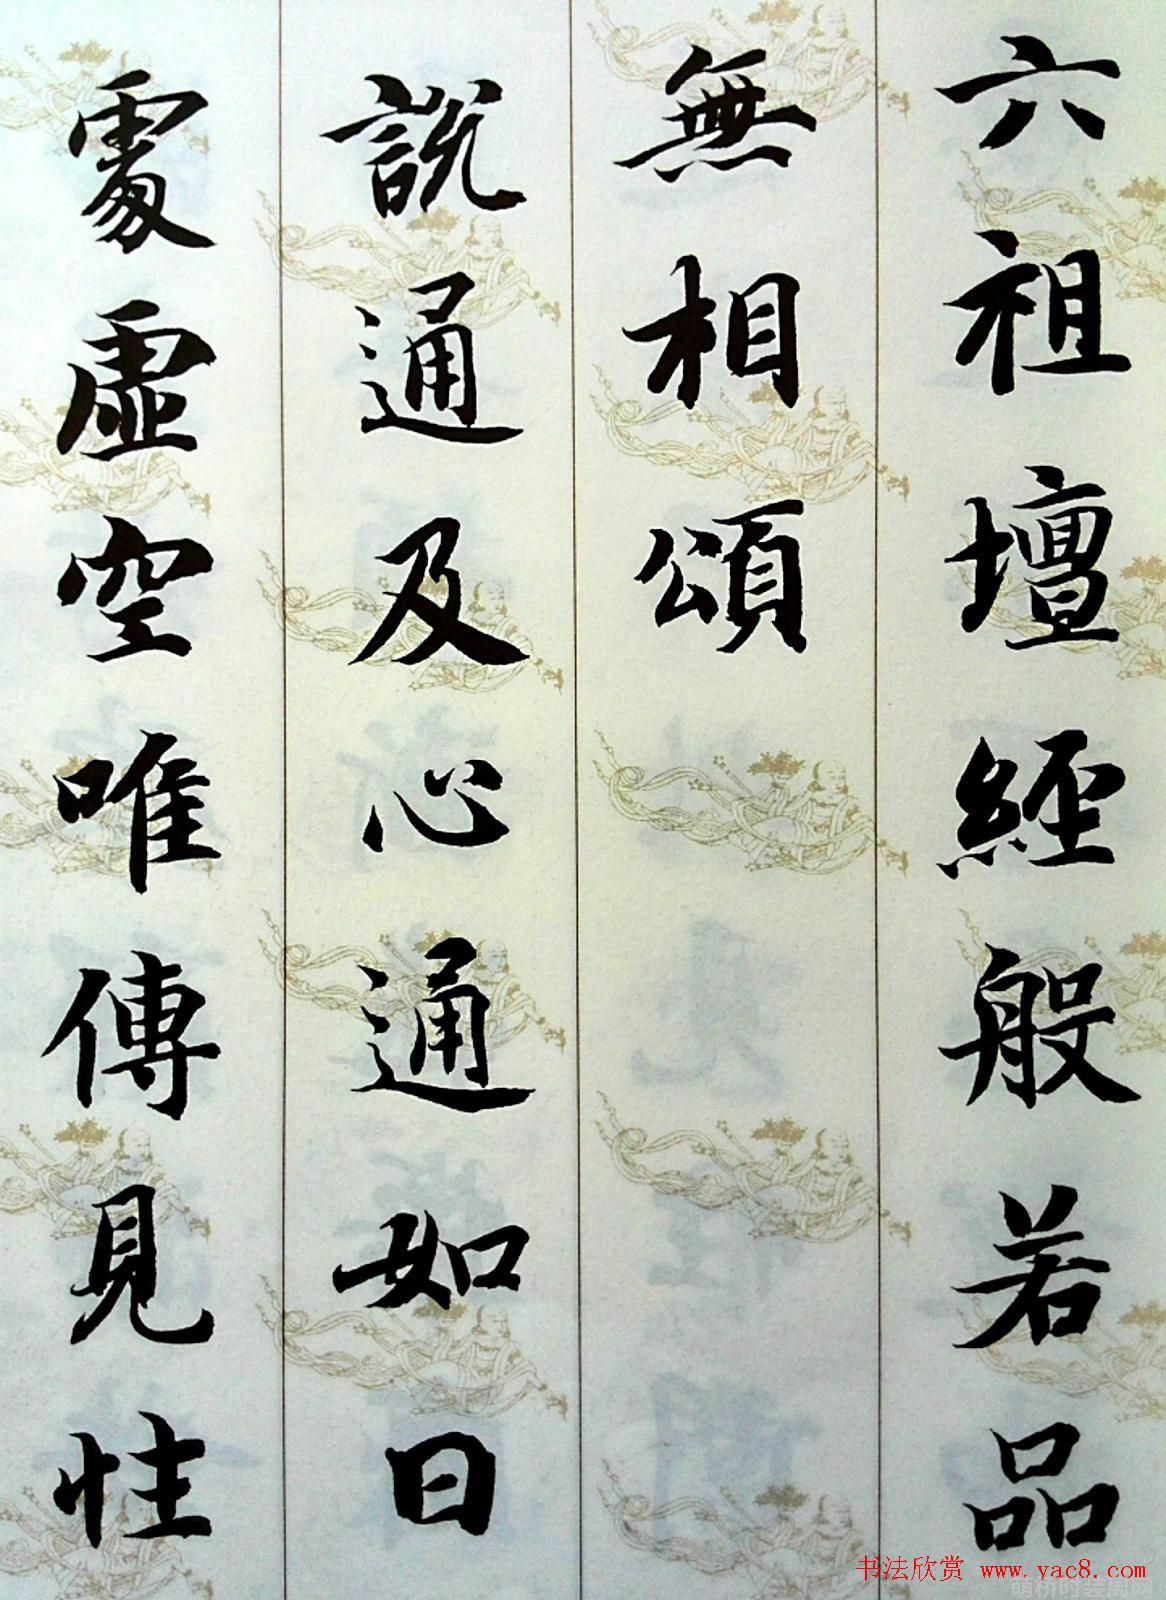 六祖壇經般若品
無相頌
說通及心通如日
處虛空唯傳見性
书法欣赏 www.yac8.com
萌桥时装周网